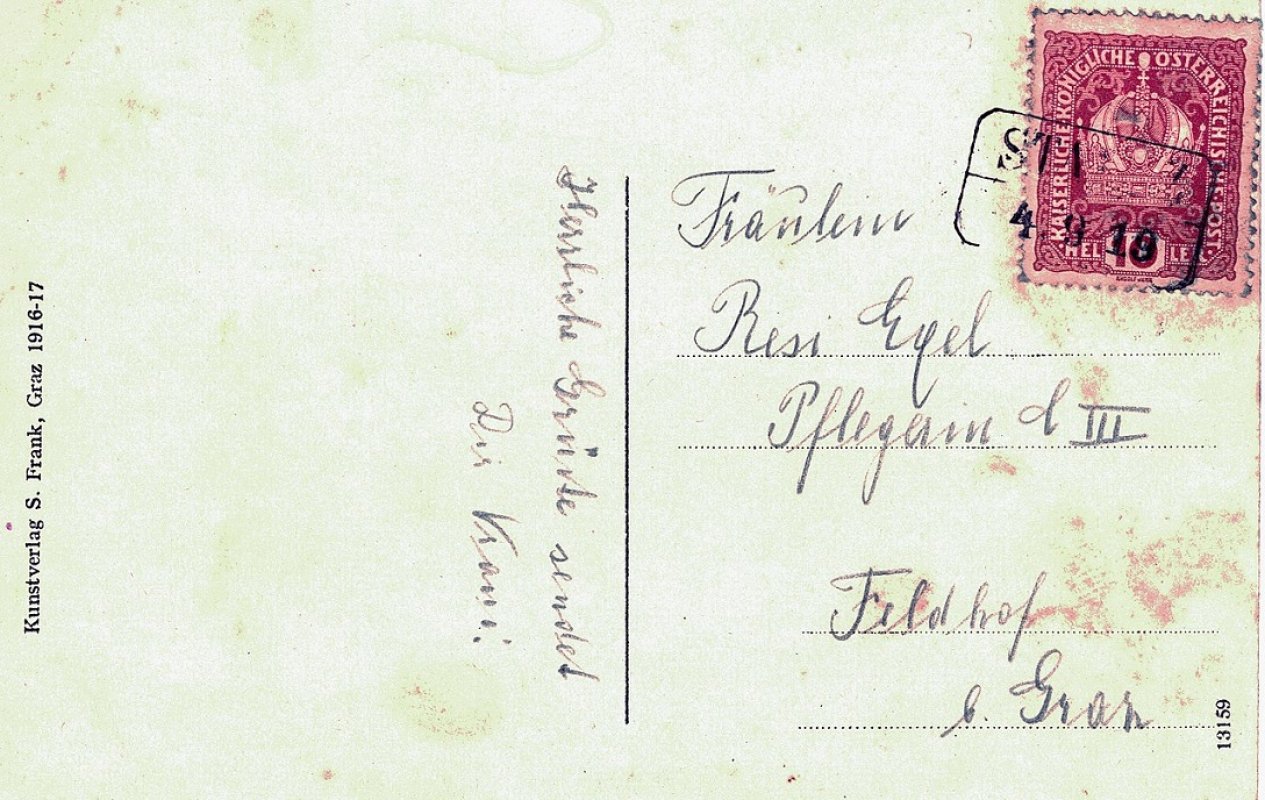 Kunstverlag S. Frank, Graz 1916-17
Herzliche Grüße sendet
Dir
KAISERLICHE KÖNIGLICHE ÖSTERREICHISCHE POST
HELLER
4. 9 19
Fräulein
Resi Egel
Pflegerin III
Feldhof
b. Graz
13159